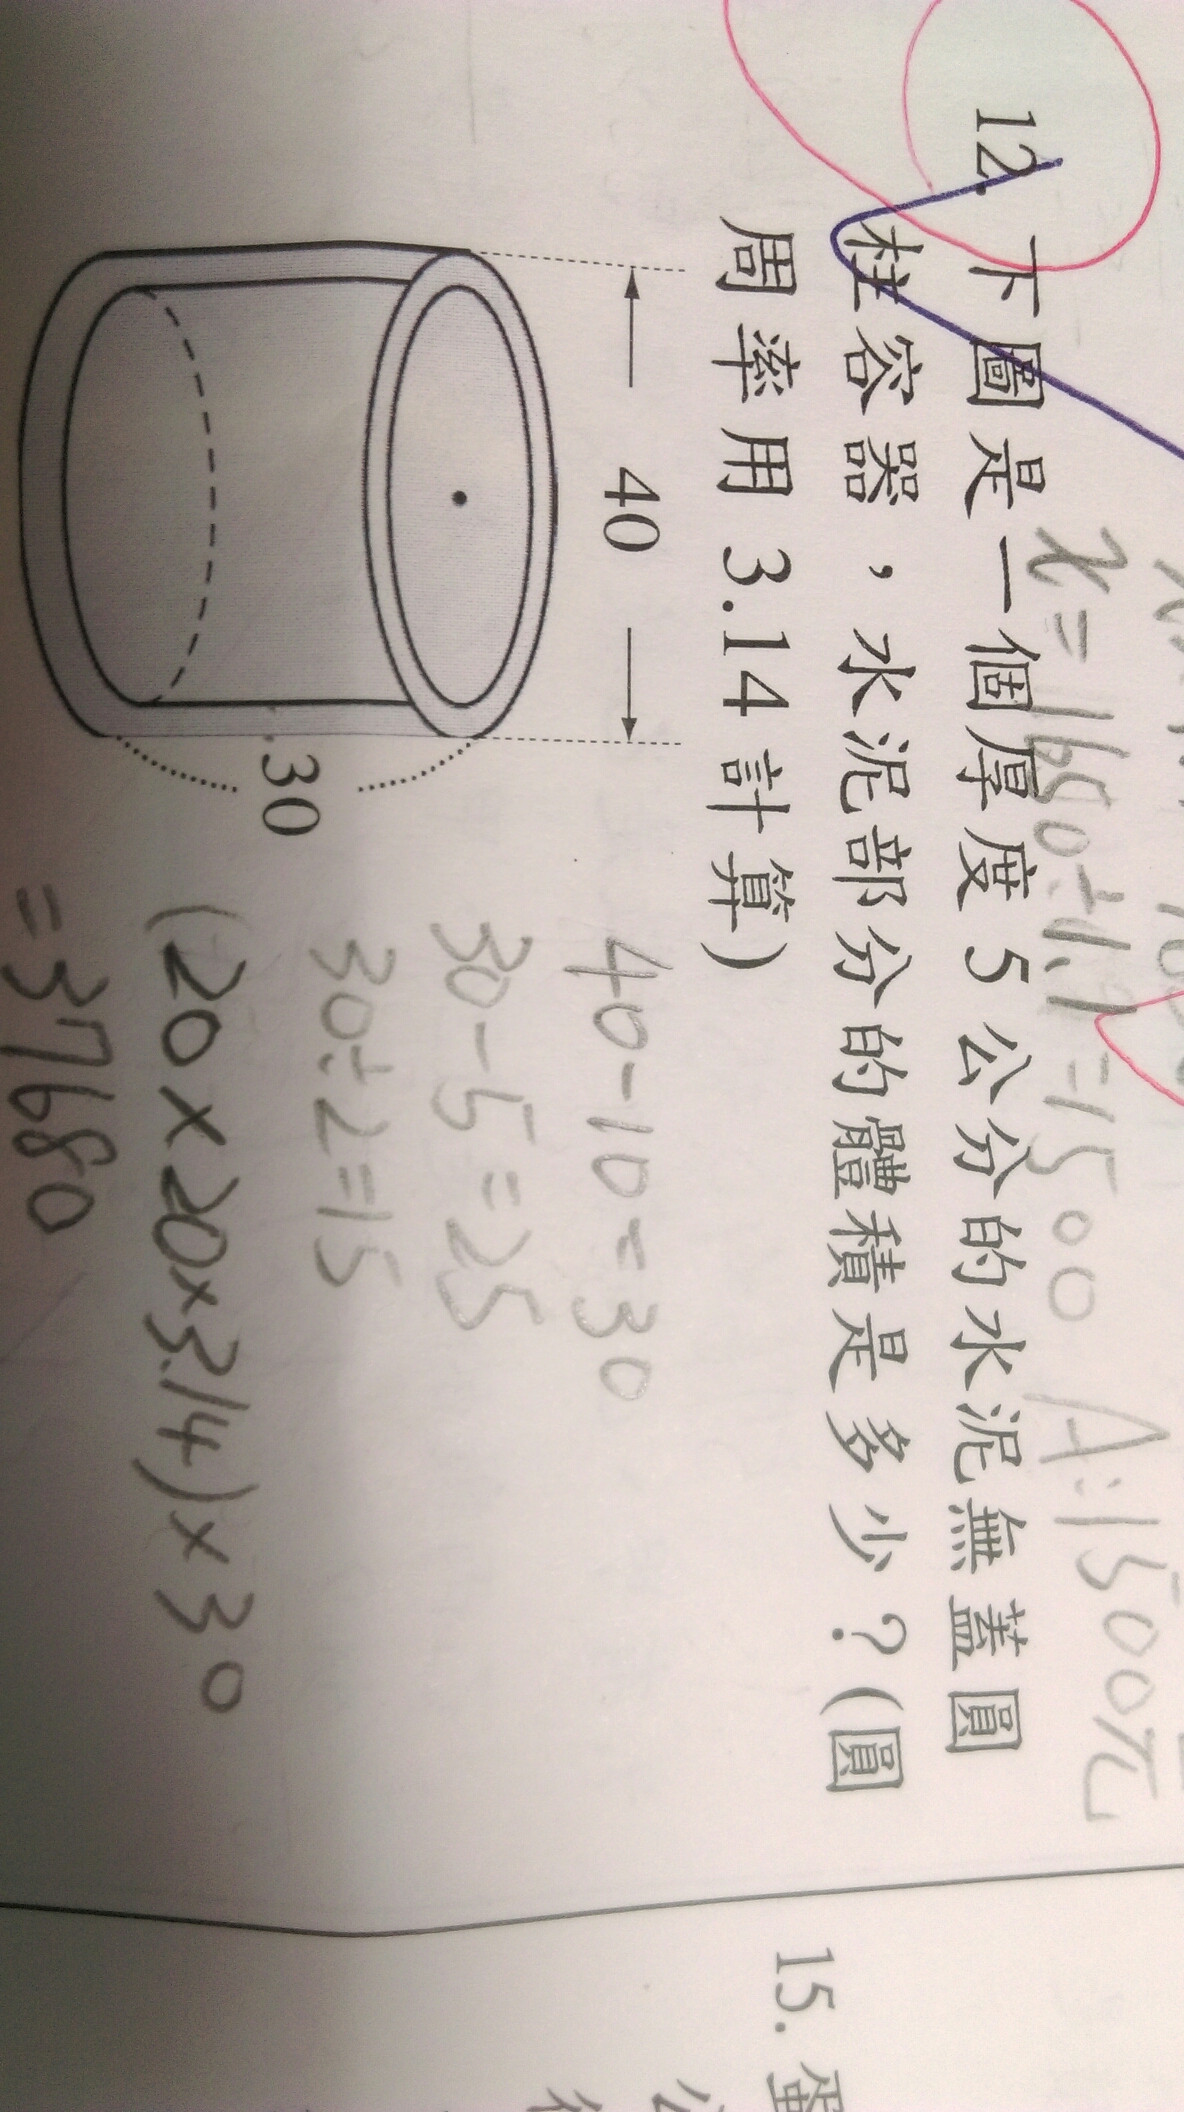 x=1650÷1.1=1500 A:1500元
12. 下圖是一個厚度 5 公分的水泥無蓋圓
柱容器，水泥部分的體積是多少？(圓
周率用 3.14 計算)
40
30
40-10=30
30-5=25
30÷2=15
(20×20×3.14)×30
=37680
15.